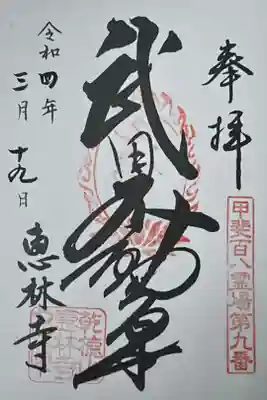 奉拝
甲斐百八霊場第九番
武田不動尊
令和四年
三月
十九日
恵林寺